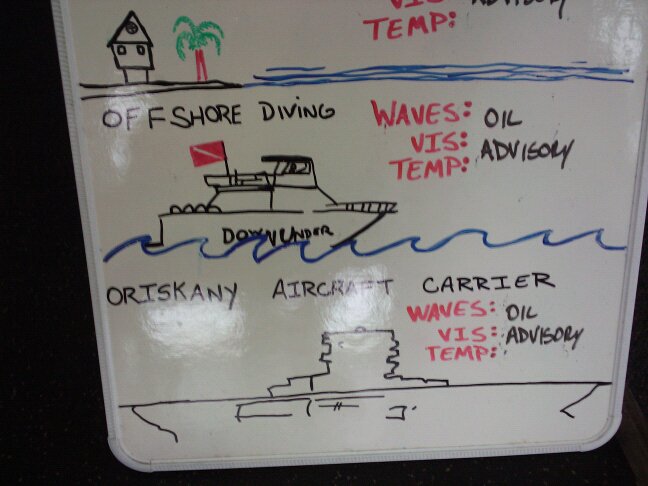 VIS: ADVISORY
TEMP:
OFFSHORE DIVING
WAVES: OIL
VIS: ADVISORY
TEMP:
DOWN UNDER
ORISKANY AIRCRAFT CARRIER
WAVES: OIL
VIS: ADVISORY
TEMP: